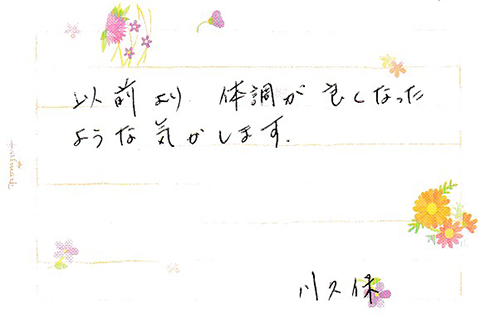 以前より 体調が良くなった
ような気がします.
川久保